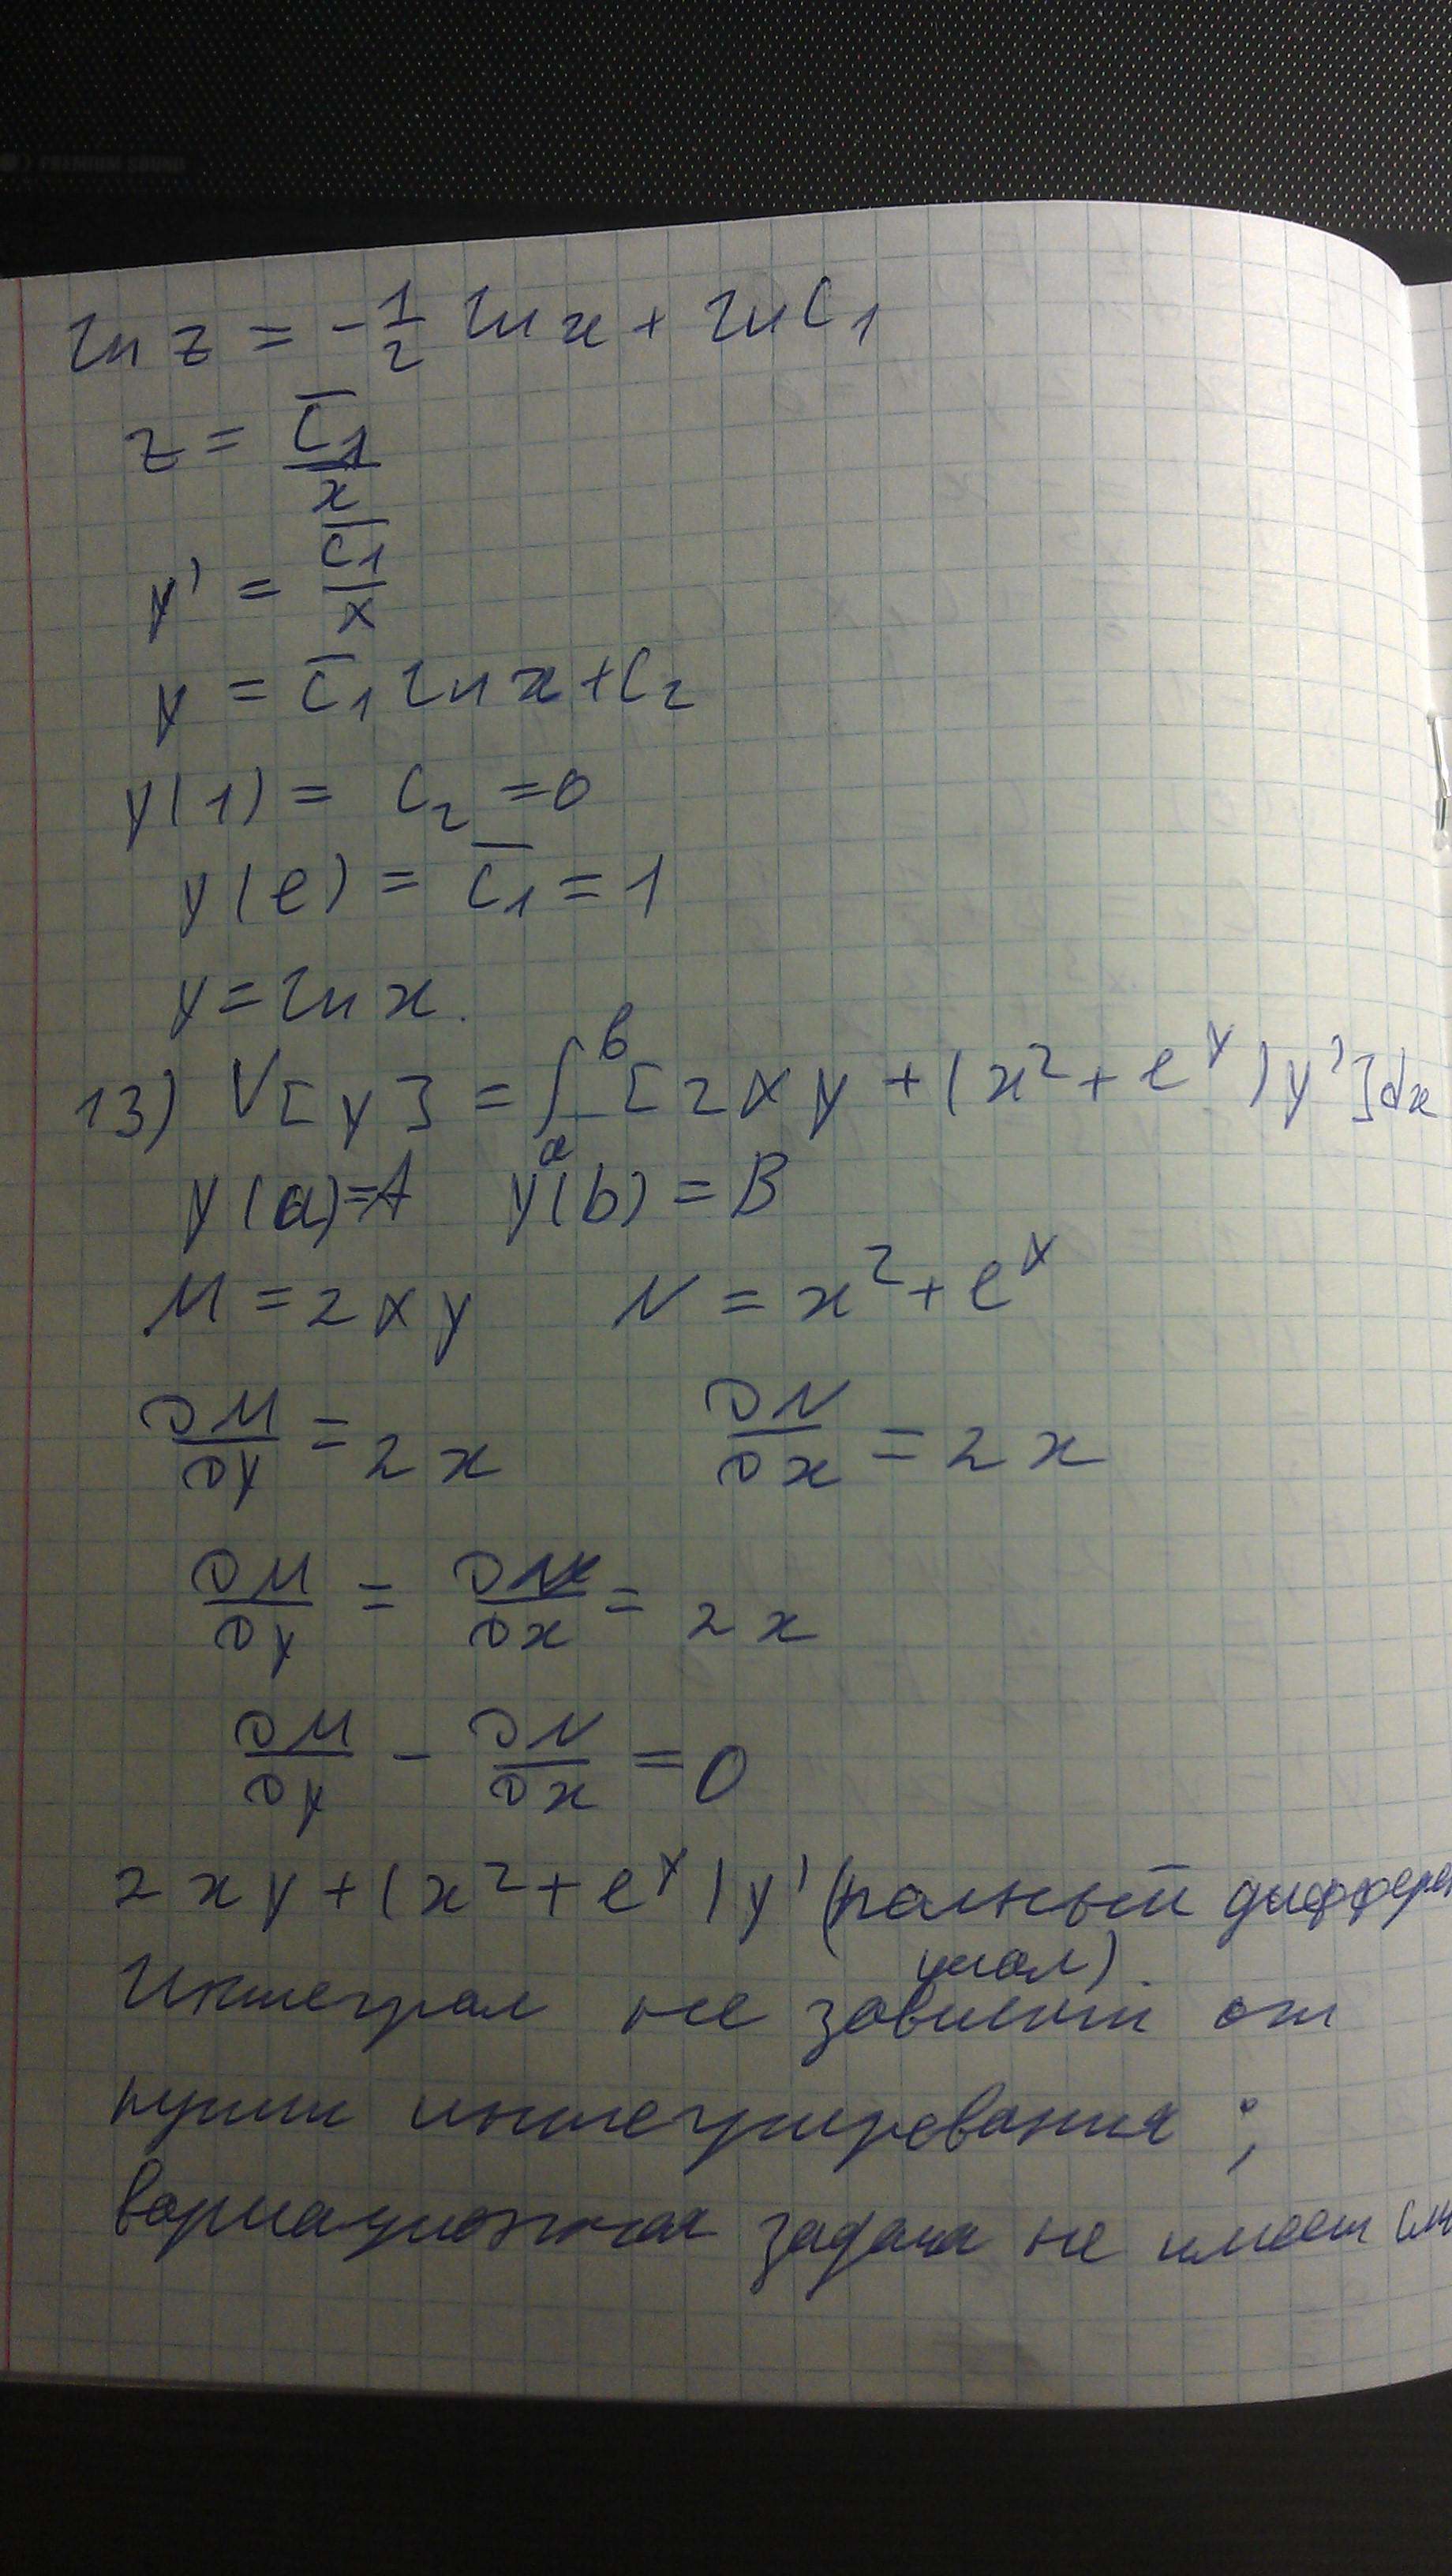 PREMIUM SOUND
ln z = -1/2 ln x + ln C₁
z = C̄₁/x
y' = C̄₁/x
y = C̄₁ ln x + C₂
y(1) = C₂ = 0
y(e) = C̄₁ = 1
y = ln x.
13) V[y] = ∫ₐᵇ [2xy + (x² + e^y)y']dx
y(a)=A y(b) = B
M = 2xy N = x² + e^y
∂M/∂y = 2x ∂N/∂x = 2x
∂M/∂y = ∂N/∂x = 2x
∂M/∂y - ∂N/∂x = 0
2xy + (x² + e^y)y' (полный дифферен
циал).
Интеграл не зависит от
пути интегрирования ;
вариационная задача не имеет см